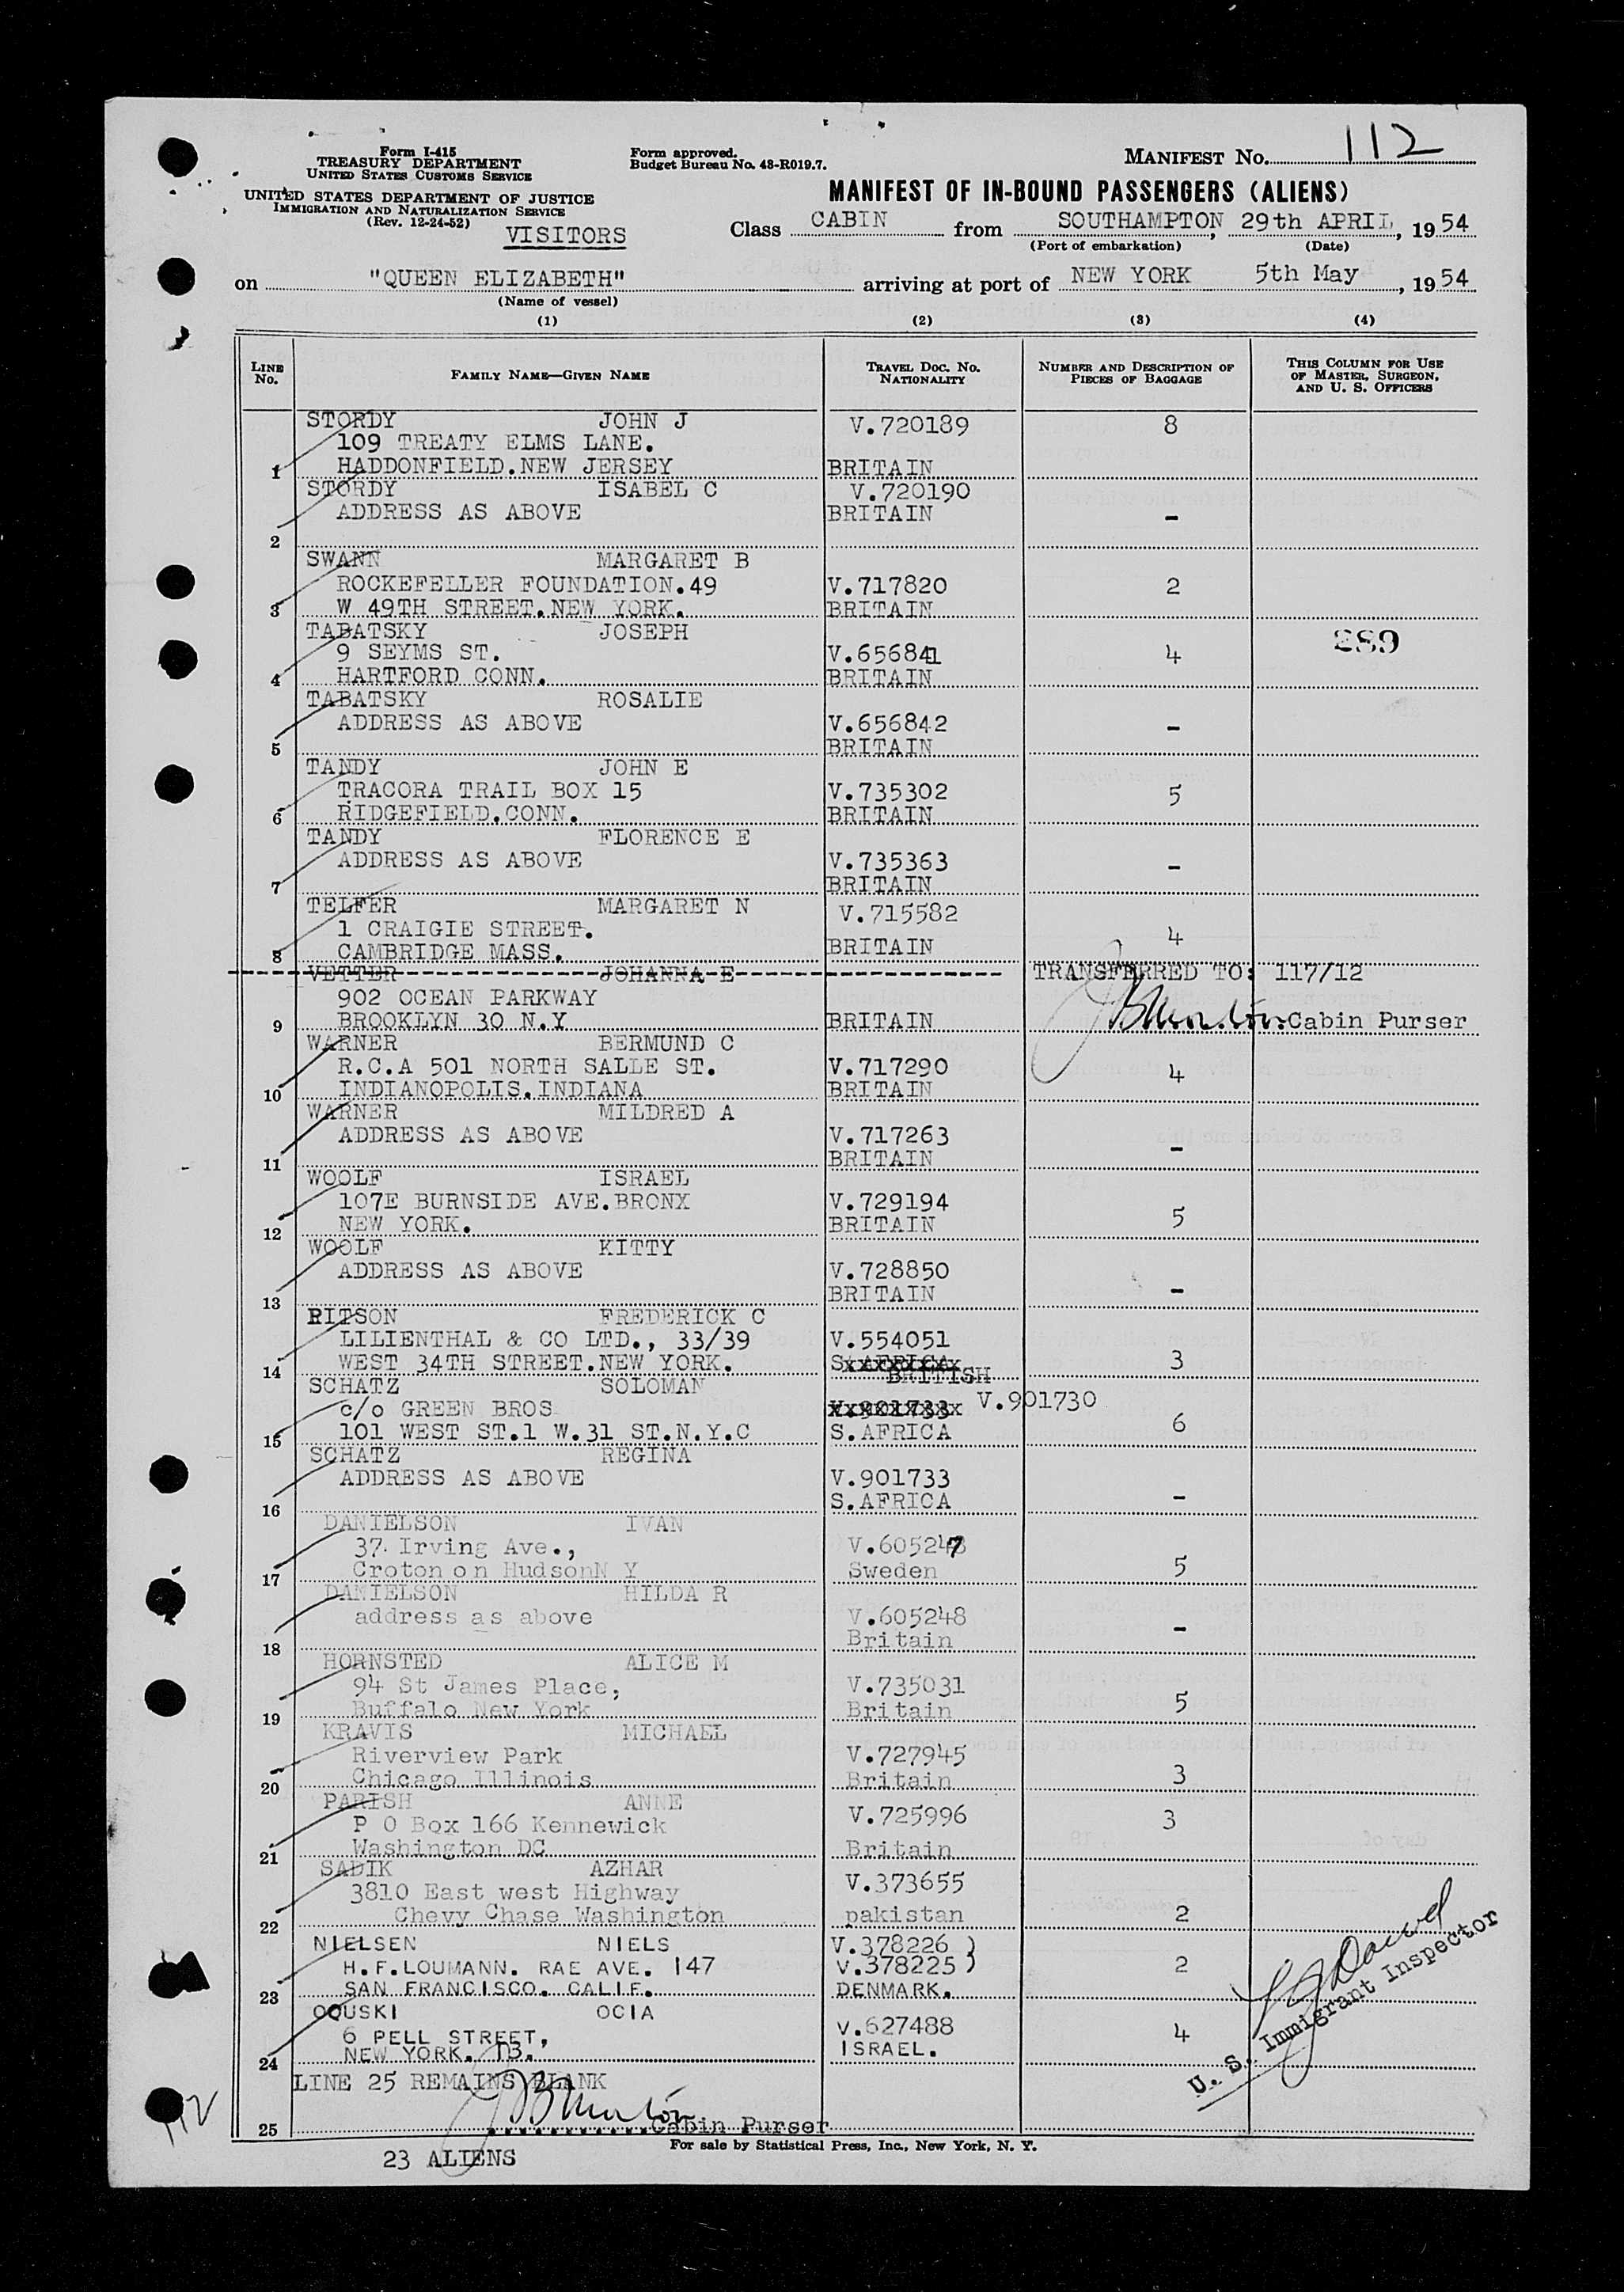 Form I-415
TREASURY DEPARTMENT
UNITED STATES CUSTOMS SERVICE
UNITED STATES DEPARTMENT OF JUSTICE
IMMIGRATION AND NATURALIZATION SERVICE
(Rev. 12-24-52)
VISITORS
Form approved.
Budget Bureau No. 43-R019.7.
MANIFEST No. 112
MANIFEST OF IN-BOUND PASSENGERS (ALIENS)
Class CABIN from SOUTHAMPTON, 29th APRIL, 1954
(Port of embarkation) (Date)
on "QUEEN ELIZABETH" arriving at port of NEW YORK 5th May, 1954
(Name of vessel)
(1) (2) (3) (4)
LINE No. FAMILY NAME—GIVEN NAME TRAVEL DOC. No. NATIONALITY NUMBER AND DESCRIPTION OF PIECES OF BAGGAGE THIS COLUMN FOR USE OF MASTER, SURGEON, AND U. S. OFFICERS
STORDY JOHN J V.720189 8
109 TREATY ELMS LANE.
1 HADDONFIELD.NEW JERSEY BRITAIN
STORDY ISABEL C V.720190
ADDRESS AS ABOVE BRITAIN -
2
SWANN MARGARET B
ROCKEFELLER FOUNDATION.49 V.717820 2
3 W 49TH STREET.NEW YORK. BRITAIN
TABATSKY JOSEPH 289
9 SEYMS ST. V.656841 4
4 HARTFORD CONN. BRITAIN
TABATSKY ROSALIE
ADDRESS AS ABOVE V.656842 -
5 BRITAIN
TANDY JOHN E
TRACORA TRAIL BOX 15 V.735302 5
6 RIDGEFIELD.CONN. BRITAIN
TANDY FLORENCE E
ADDRESS AS ABOVE V.735363 -
7 BRITAIN
TELFER MARGARET N V.715582
1 CRAIGIE STREET. 4
8 CAMBRIDGE MASS. BRITAIN
VETTER JOHANNA E TRANSFERRED TO: 117/12
902 OCEAN PARKWAY
9 BROOKLYN 30 N.Y BRITAIN Cabin Purser
WARNER BERMUND C
R.C.A 501 NORTH SALLE ST. V.717290 4
10 INDIANOPOLIS.INDIANA BRITAIN
WARNER MILDRED A
ADDRESS AS ABOVE V.717263 -
11 BRITAIN
WOOLF ISRAEL
107E BURNSIDE AVE.BRONX V.729194 5
12 NEW YORK. BRITAIN
WOOLF KITTY
ADDRESS AS ABOVE V.728850
13 BRITAIN -
RITSON FREDERICK C
LILIENTHAL & CO LTD., 33/39 V.554051
14 WEST 34TH STREET.NEW YORK. S.AFRICA 3
BRITISH
SCHATZ SOLOMAN
c/o GREEN BROS V.901733 V.901730
15 101 WEST ST.1 W.31 ST.N.Y.C S.AFRICA 6
SCHATZ REGINA
ADDRESS AS ABOVE V.901733
16 S.AFRICA -
DANIELSON IVAN
37 Irving Ave., V.605247
17 Croton on HudsonN Y Sweden 5
DANIELSON HILDA R
address as above V.605248
18 Britain -
HORNSTED ALICE M
94 St James Place, V.735031
19 Buffalo New York Britain 5
KRAVIS MICHAEL
Riverview Park V.727945
20 Chicago Illinois Britain 3
PARISH ANNE
P O Box 166 Kennewick V.725996 3
21 Washington DC Britain
SADIK AZHAR
3810 East west Highway V.373655
22 Chevy Chase Washington pakistan 2
NIELSEN NIELS V.378226 )
H.F.LOUMANN. RAE AVE. 147 V.378225 ) 2
23 SAN FRANCISCO. CALIF. DENMARK.
OOUSKI OCIA
6 PELL STREET, V.627488 4
24 NEW YORK. 13. ISRAEL.
U. S. Immigrant Inspector
LINE 25 REMAINS BLANK
112
25 Cabin Purser
For sale by Statistical Press, Inc., New York, N. Y.
23 ALIENS